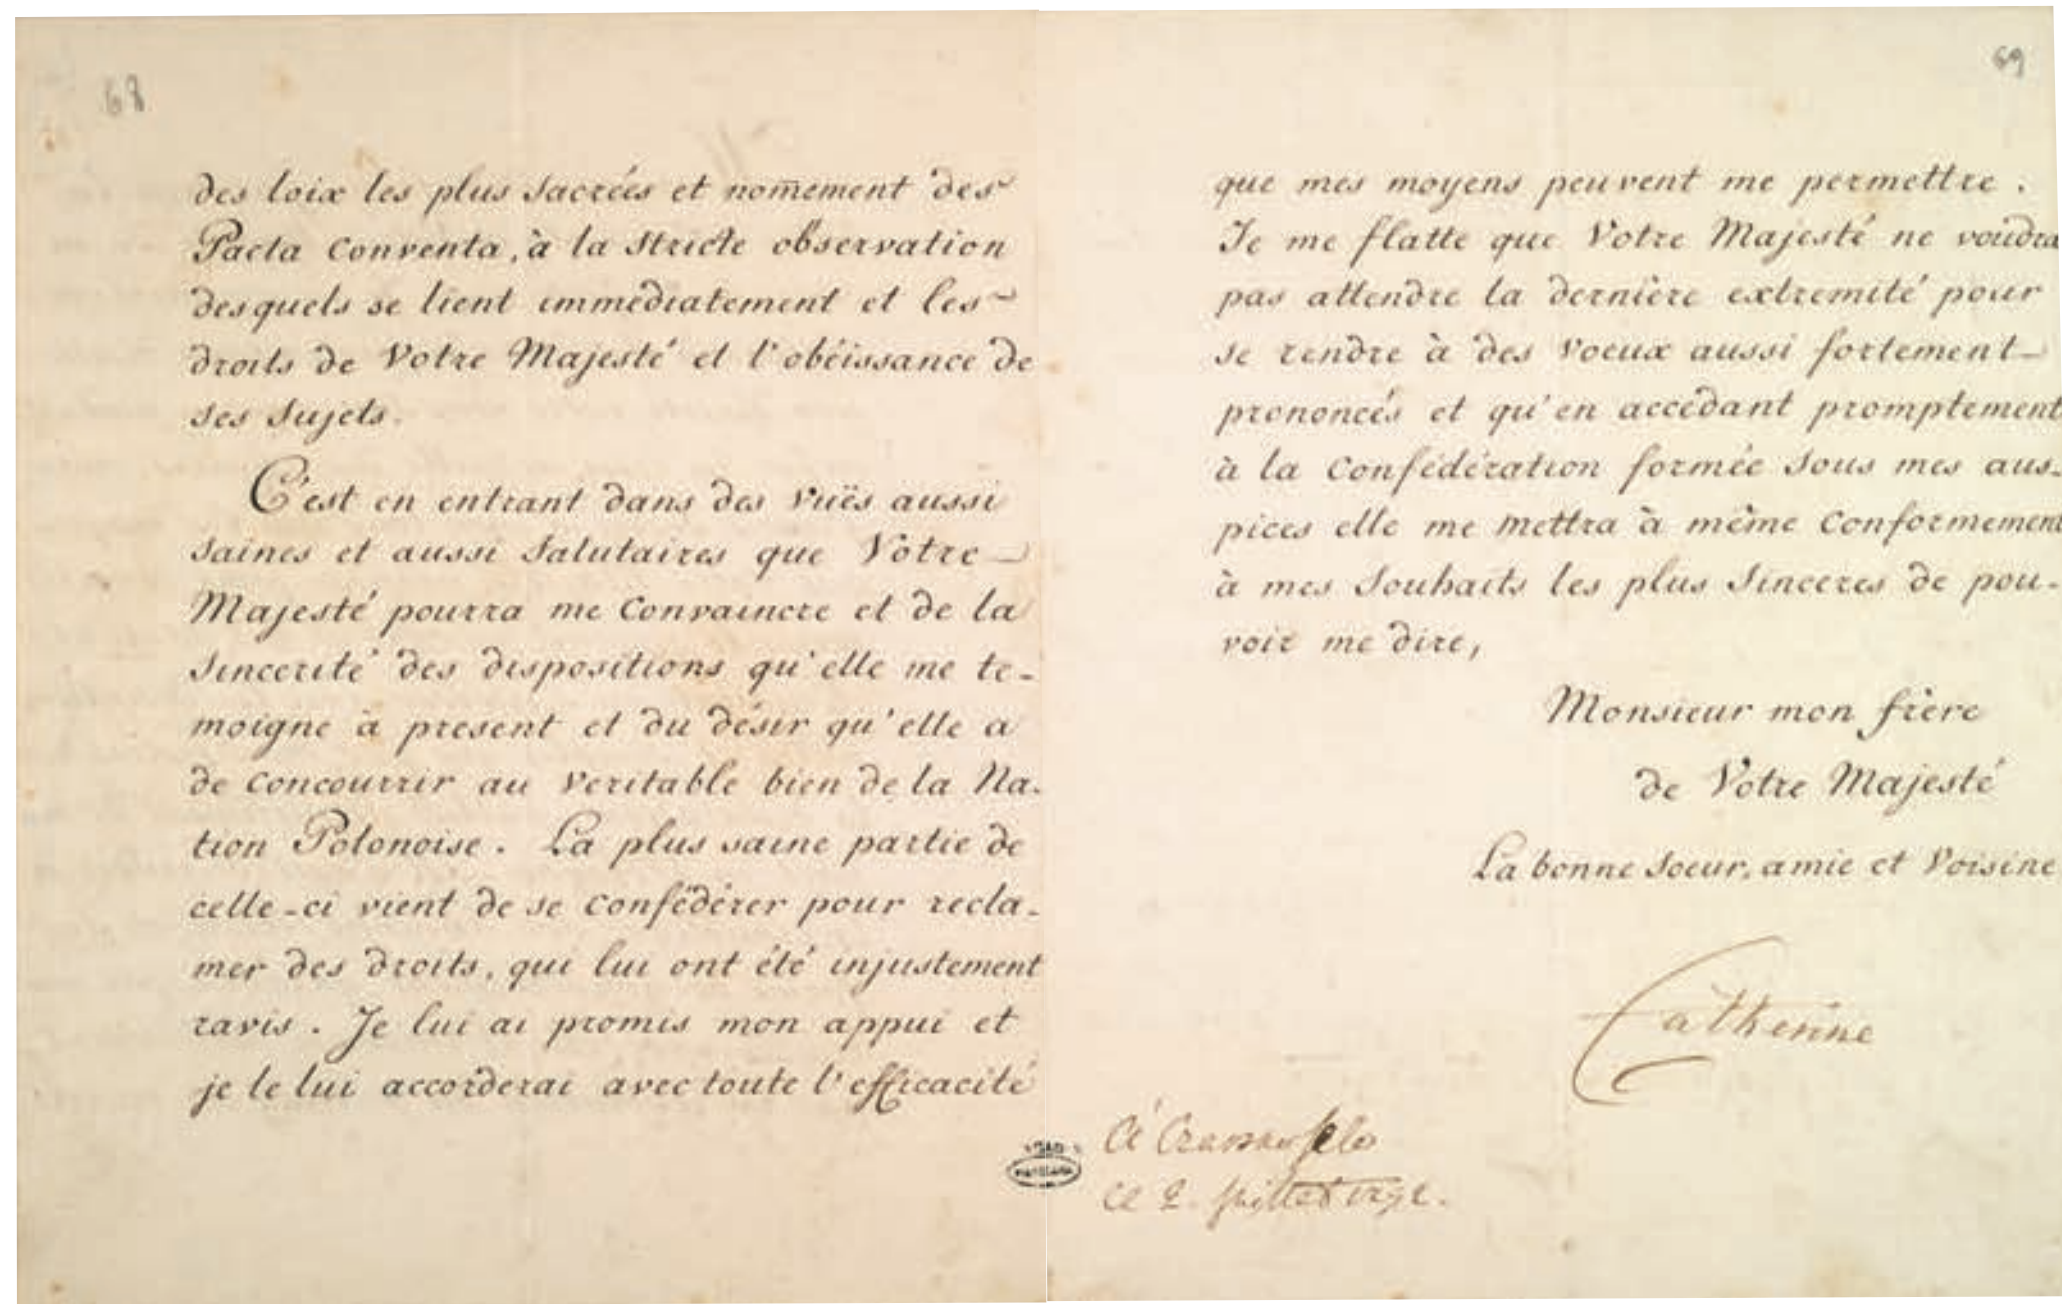 68
des loix les plus sacrées et nom̄ement des
Pacta Conventa, à la stricte observation
desquels se lient immédiatement et les
droits de Votre Majesté et l'obéissance de
ses sujets.
C'est en entrant dans des vuës aussi
saines et aussi salutaires que Votre
Majesté pourra me Convaincre et de la
sincerité des dispositions qu'elle me te-
moigne à present et du désir qu'elle a
de concourrir au veritable bien de la Na-
tion Polonoise. La plus saine partie de
celle-ci vient de se confédérer pour recla-
mer des droits, qui lui ont été injustement
ravis. Je lui ai promis mon appui et
je le lui accorderai avec toute l'efficacité
69
que mes moyens peuvent me permettre.
Je me flatte que Votre Majesté ne voudra
pas attendre la dernière extremité pour
se rendre à des voeux aussi fortement
prononcés et qu'en accédant promptement
à la Confédération formée sous mes aus-
pices elle me mettra à même Conformement
à mes souhaits les plus sinceres de pou-
voir me dire,
Monsieur mon frère
de Votre Majesté
La bonne soeur, amie et Voisine
Catherine
ce 2.